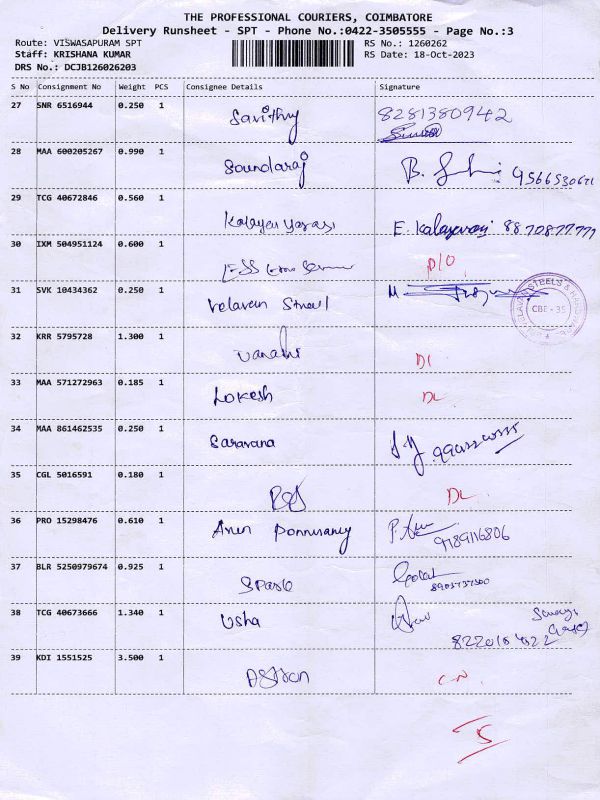 THE PROFESSIONAL COURIERS, COIMBATORE
Delivery Runsheet - SPT - Phone No.:0422-3505555 - Page No.:3
Route: VISWASAPURAM SPT
Staff: KRISHANA KUMAR
DRS No.: DCJB126026203
RS No.: 1260262
RS Date: 18-Oct-2023
S No Consignment No Weight PCS Consignee Details Signature
27 SNR 6516944 0.250 1 Savithry 8281380942
28 MAA 600205267 0.990 1 Soundaraj B. 9566530671
29 TCG 40672846 0.560 1 E. Kalaiyarasi 8870877777
30 IXM 504951124 0.600 1 ESS D/O
31 SVK 10434362 0.250 1 Velavan Steel M.
STEELS & HARDWARE
CBE - 35
32 KRR 5795728 1.300 1 Vanathi DL
33 MAA 571272963 0.185 1 Lokesh DL
34 MAA 861462535 0.250 1 Saravana
35 CGL 5016591 0.180 1 DL
36 PRO 15298476 0.610 1 Arun Ponnusamy 9789116806
37 BLR 5250979674 0.925 1 Gokul
38 TCG 40673666 1.340 1 Usha
39 KDI 1551525 3.500 1 C-N
5